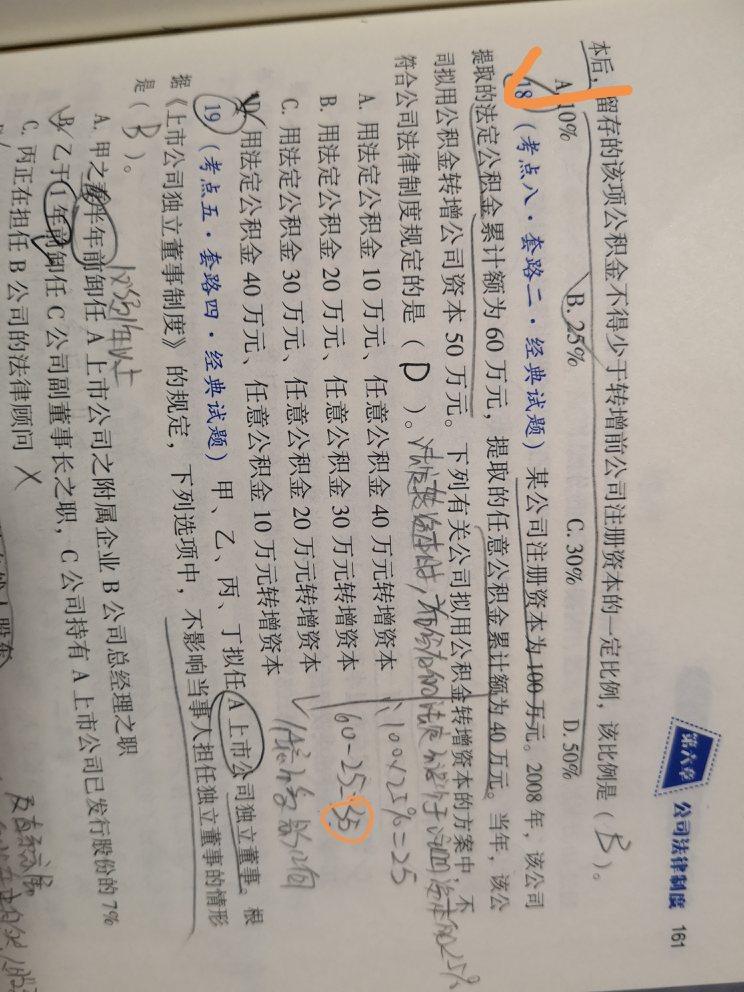 第六章 公司法律制度 161
本后，留存的该项公积金不得少于转增前公司注册资本的一定比例，该比例是（ B ）。
A. 10% B. 25% C. 30% D. 50%
18（考点八·套路二·经典试题）某公司注册资本为100万元。2008年，该公司
提取的法定公积金累计额为60万元，提取的任意公积金累计额为40万元。当年，该公
司拟用公积金转增公司资本50万元。下列有关公司拟用公积金转增资本的方案中，不
符合公司法律制度规定的是（ D ）。
A. 用法定公积金10万元、任意公积金40万元转增资本
100×25%=25
B. 用法定公积金20万元、任意公积金30万元转增资本
60-25=35
C. 用法定公积金30万元、任意公积金20万元转增资本
D. 用法定公积金40万元、任意公积金10万元转增资本
19（考点五·套路四·经典试题）甲、乙、丙、丁拟任A上市公司独立董事。根
据《上市公司独立董事制度》的规定，下列选项中，不影响当事人担任独立董事的情形
是（ B ）。
A. 甲之妻半年前卸任A上市公司之附属企业B公司总经理之职
B. 乙于1年前卸任C公司副董事长之职，C公司持有A上市公司已发行股份的7%
C. 丙正在担任B公司的法律顾问